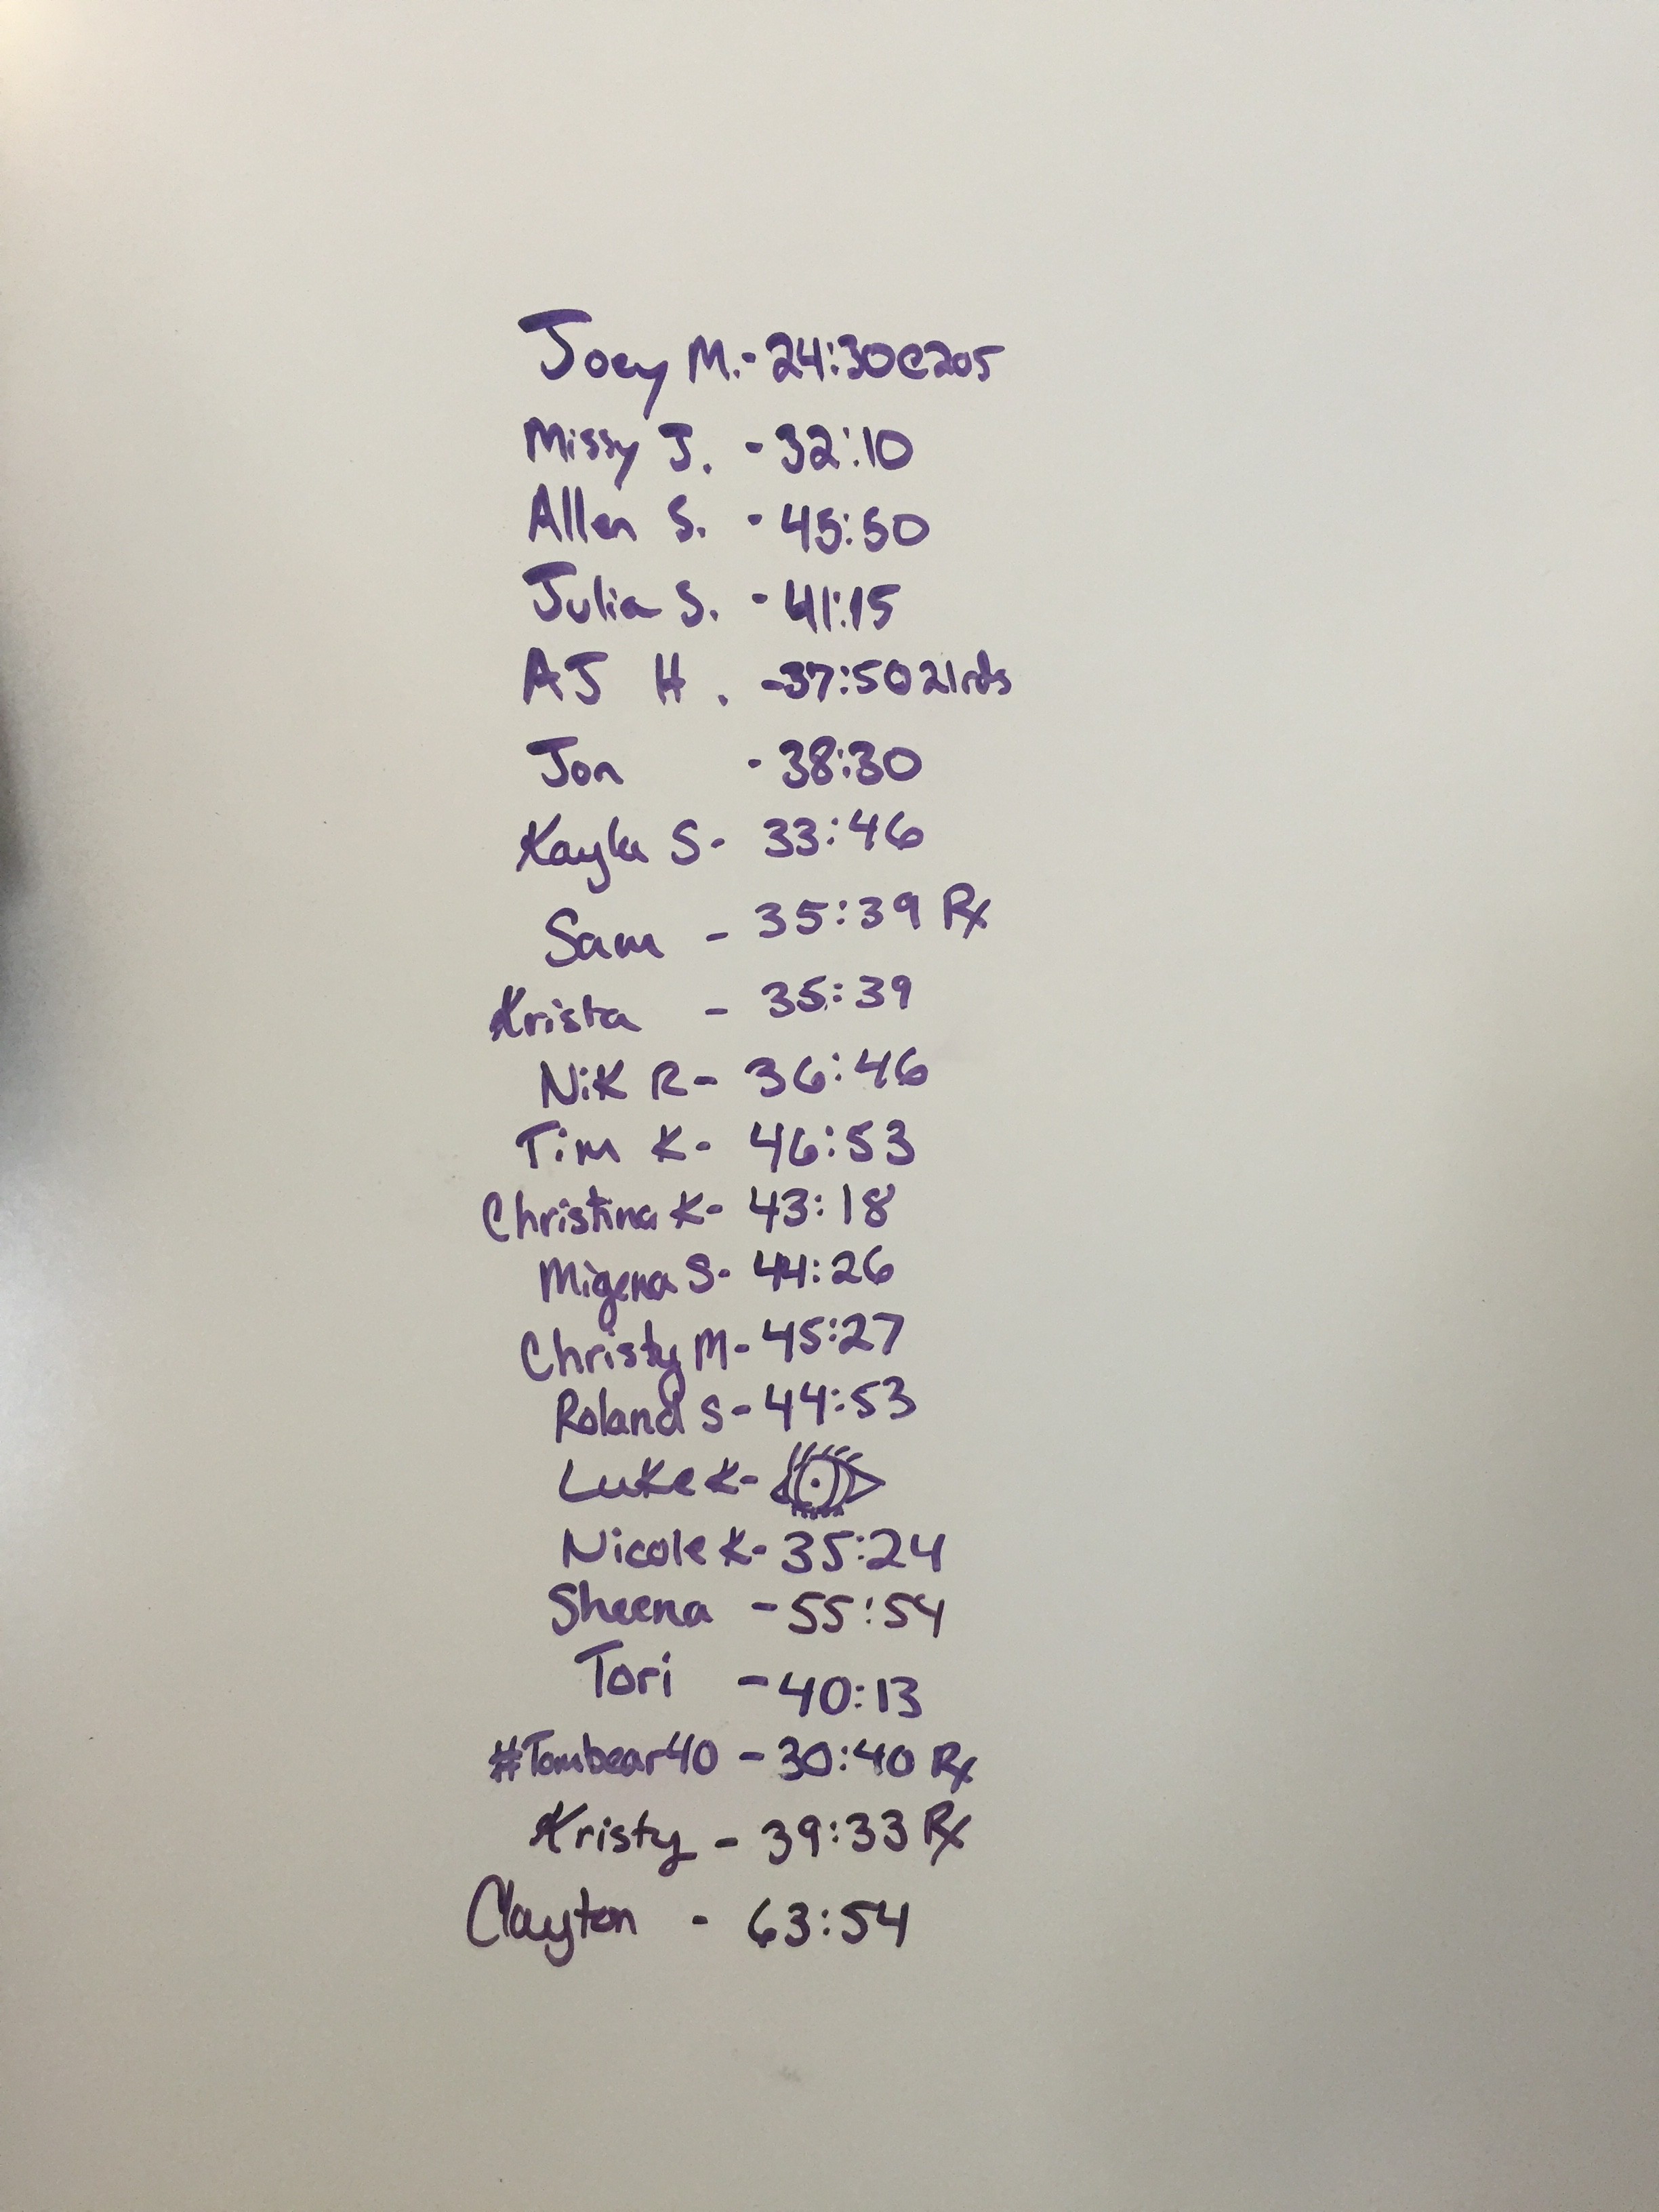 Joey M. - 24:30@205
Missy J. - 32:10
Allen S. - 45:50
Julia S. - 41:15
AJ H. - 37:50 21rds
Jon - 38:30
Kayla S - 33:46
Sam - 35:39 Rx
Krista - 35:39
Nik R - 36:46
Tim K - 46:53
Christina K - 43:18
Migena S - 44:26
Christy M - 45:27
Roland S - 44:53
Luke K -
Nicole K - 35:24
Sheena - 55:54
Tori - 40:13
#Tombear40 - 30:40 Rx
Kristy - 39:33 Rx
Clayton - 63:54